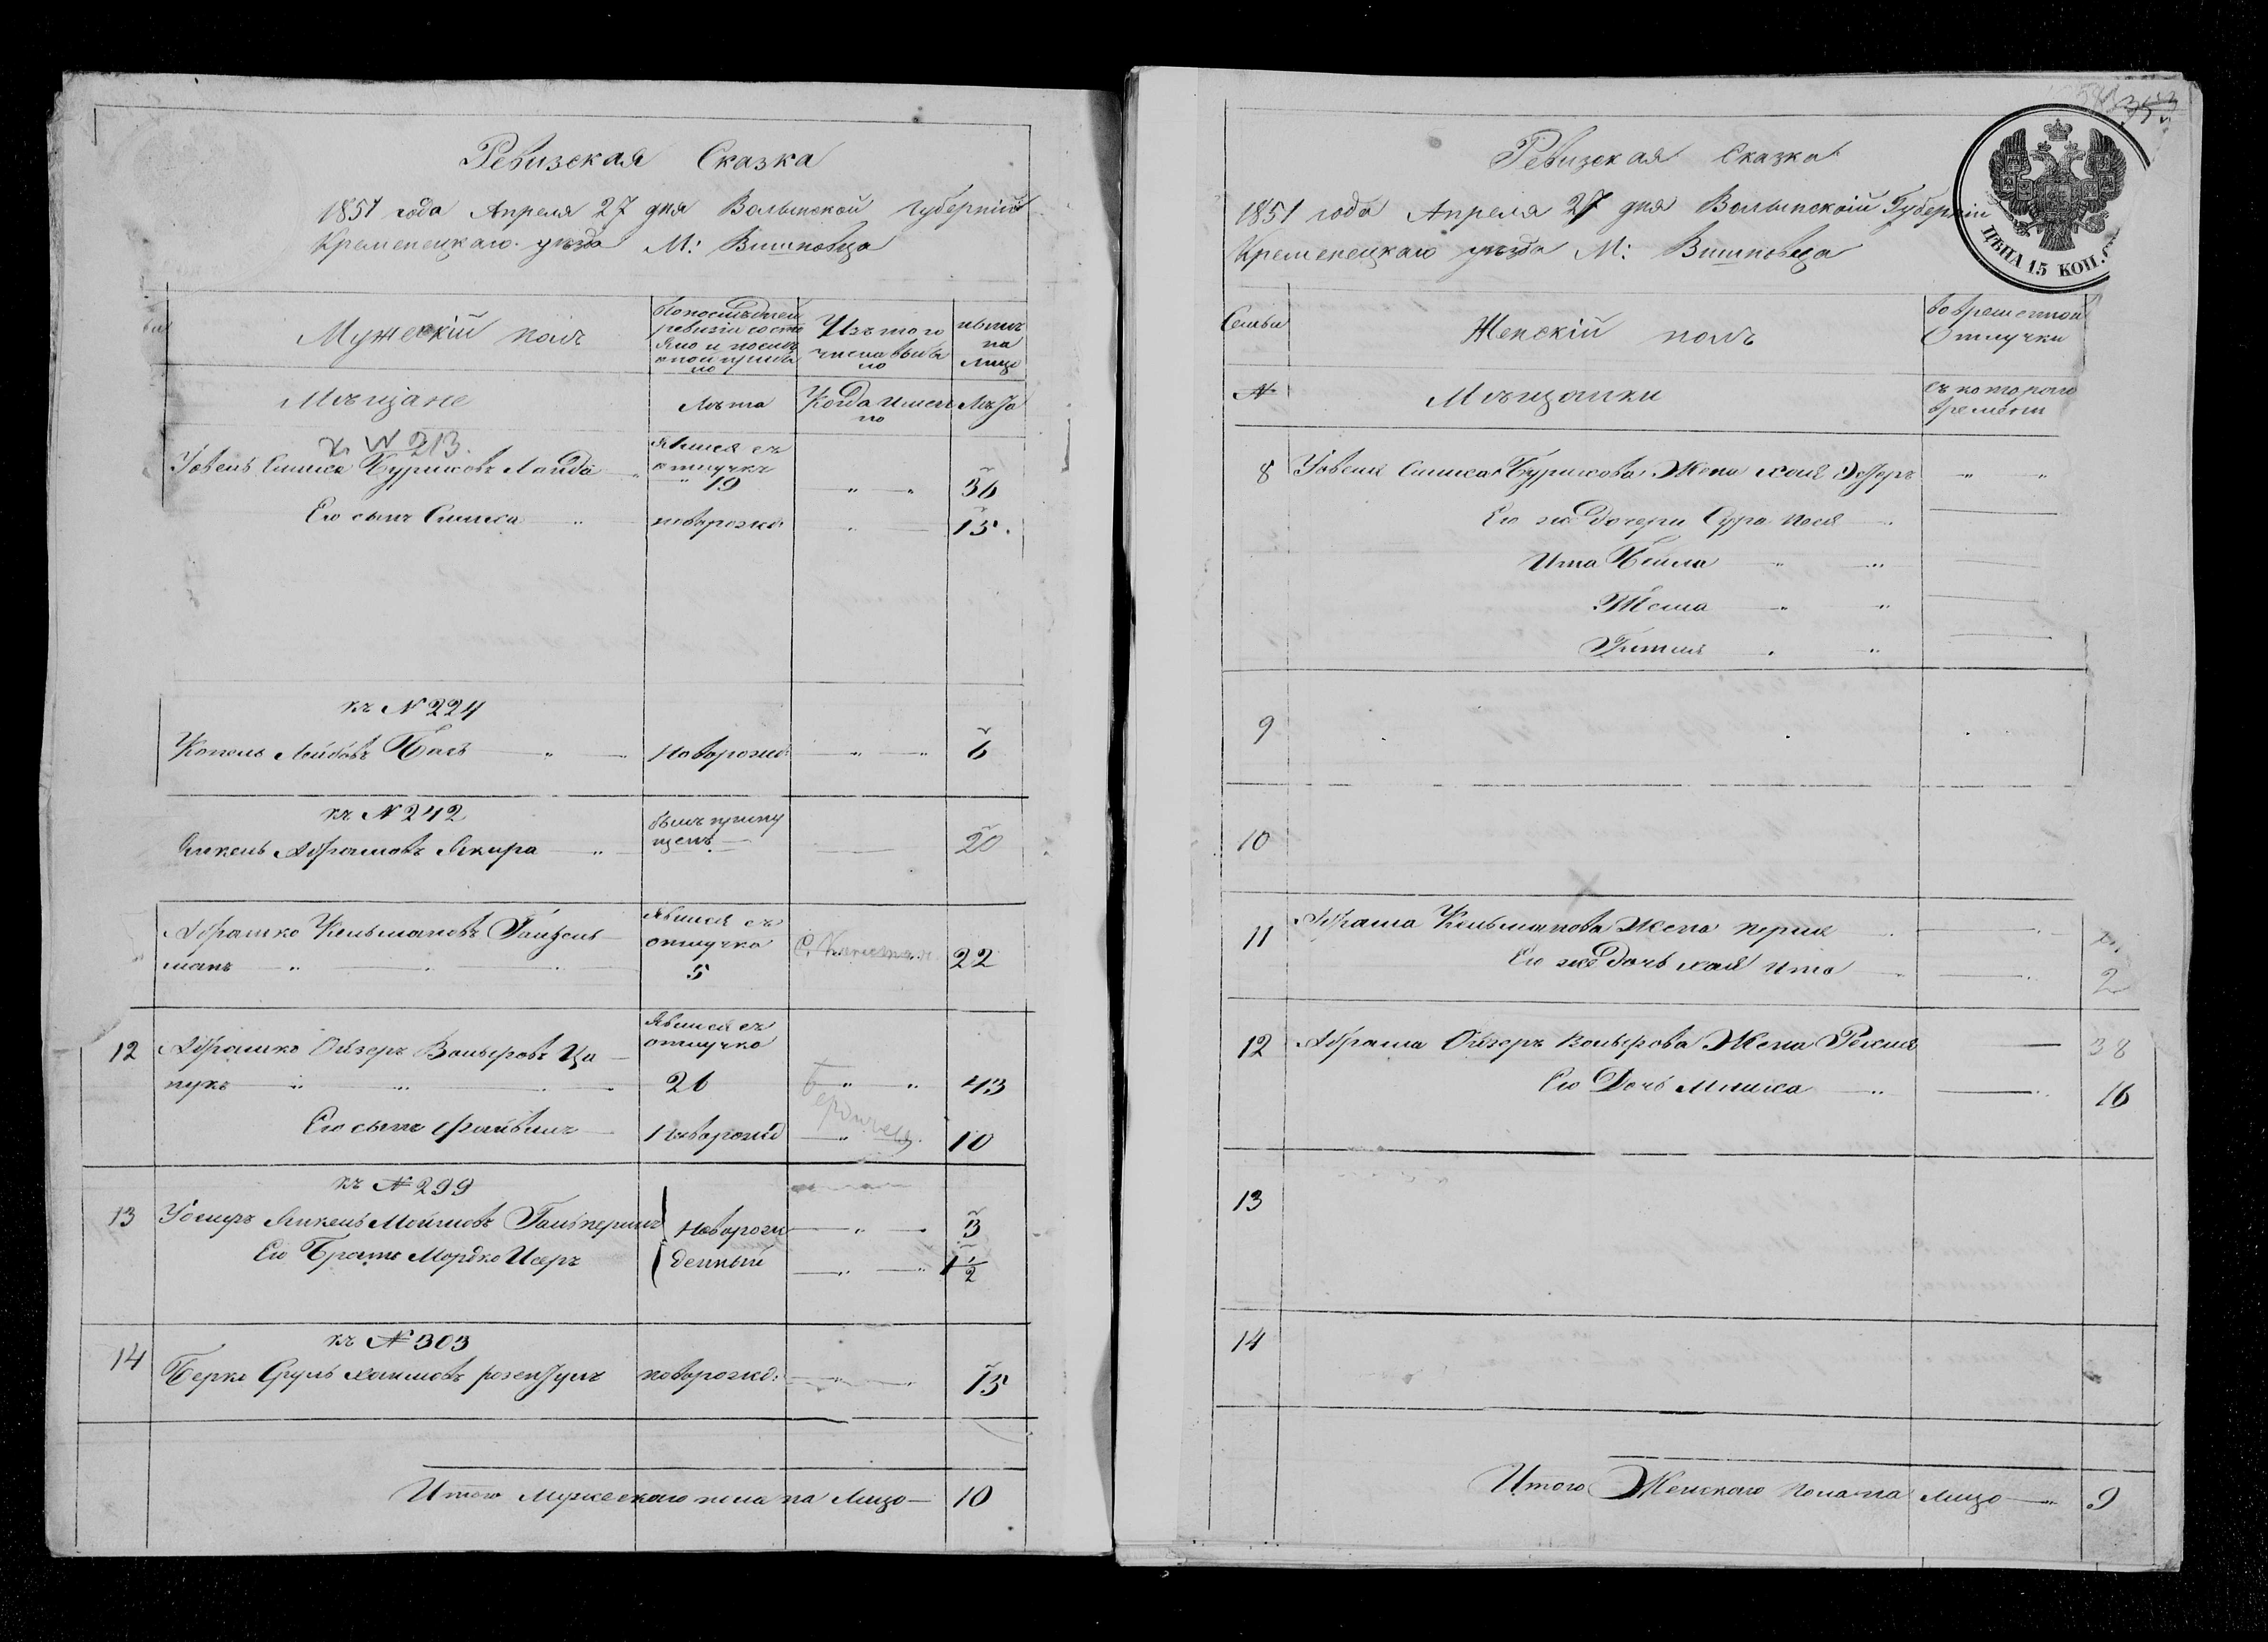 Ревизская Сказка
1851 года Апреля 27 дня Волынской Губернии
Кременецкаго уезда М: Вишновца
Мужескій полъ
По последней ревизіи состояло и после оной прибыло
Изъ того числа выбыло
ныне на лицо
Мѣщане
Лѣта
Когда имено
Лѣта
къ N 213.
Іовель Симха Буримовъ Ланда
явился съ отлучкѣ 19
36
Его сынъ Симха
новорожд:
15.
къ N 224
Копель Лейбовъ Басъ
Новорожд:
6
къ N 242
Янкель Абрамовъ Якира
былъ пропущенъ
20
Абрамко Кельмановъ Гальцельманъ
явился съ отлучка 5
22
12
Абрамко Ойзеръ Вольфовъ Цапукъ
явился съ отлучка
26
43
Его сынъ Файвишъ
Новорожд
10
къ N 299
13
Іосифъ Янкель Мошковъ Гальперинъ
Новорож
3
Его Братъ Мордко Исеръ
денный
1 1/2
къ N 303
14
Берко Сруль Хаимовъ
новорожд:
15
Итого Мужескаго пола на Лицо
10
Ревизская Сказка
1851 года Апреля 27 дня Волынской Губерніи
Кременецкаго уезда М: Вишновца
ЦѢНА 15 КОП. С
Семьи
Женскій полъ
Во временной Отлучки
N
Мѣщанки
съ котораго времени
8
Симха Буримова Жена Хая Эстеръ
Его же Дочери Сура Нося
Ита Бейла
Гитля
9
10
11
Абрама Кельманова Жена Перля
Его же Дочь Хая Ита
2
12
Абрама Ойзеръ Вольфова Жена Рейзля
38
Его Дочь
16
13
14
Итого Женскаго пола на Лицо
9